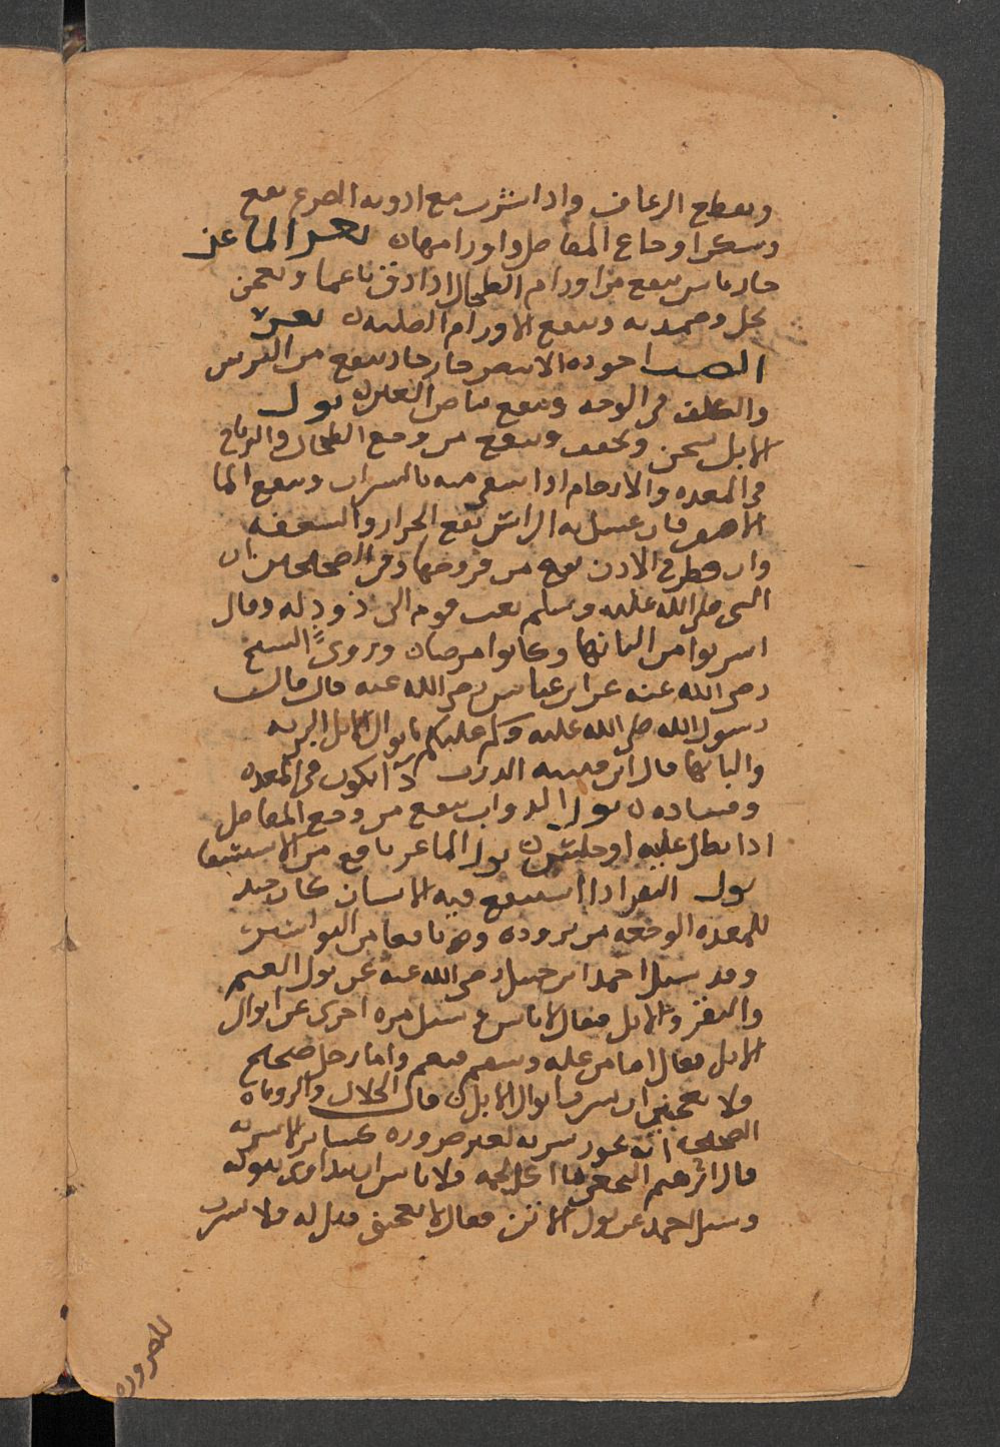 ويقطع الرعاف واذا شرب مع ادوية الصرع نفع
وسكن اوجاع المفاصل واورامها ٥ بعر الماعز
حار يابس ينفع من اورام الطحال اذا دق ناعما وعجن
بخل وضمد به وينفع الاورام الصلبة ٥ بعر
الضب اجوده الابيض حار حاد ينفع من البرص
والكلف في الوجه وينفع بياض العين ٥ بول
الابل يسخن ويجفف وينفع من وجع الطحال والرياح
في المعدة والارحام اذا سقي منه بالشراب وينفع الما
الاصفر فان غسل به الراس نفع الحزاز والسعفة
وان قطر في الاذن نفع من قروحها وفي الصحيحين ان
النبي صلى الله عليه وسلم بعث قوم الى ذود له وقال
اشربوا من البانها وكانوا مرضان وروى الشيخ
رضي الله عنه عن ابن عباس رضي الله عنه قال قال
رسول الله صلى الله عليه وسلم عليكم بابوال الابل البرية
والبانها قال ابن قتيبة الذرب دآ يكون في المعدة
وفساده ٥ بول الدواب ينفع من وجع المفاصل
اذا بطل عليه او جلس ٥ بول الماعز نافع من الاستسقا
بول البقر اذا استنقع فيه الانسان كان جيد
للمعدة الوجعة من برودة وهو نافعا من البواسير
وقد سئل احمد ابن حنبل رضي الله عنه عن بول الغنم
والبقر والابل فقال لا باس ثم سئل مرة اخرى عن ابوال
الابل فقال اما من علة وسقم فنعم واما رجل صحيح
فلا يعجبني ان يشرب ابوال الابل ٥ قال الخلال والرواية
الصحيحة انه يجوز شربه لغير ضرورة كسائر الاشربة
قال ابرهيم النخعي ما اكل لحمه فلا باس ان يتداوى ببوله
وسئل احمد عن بول الاتن فقال لا يعجبني قيل له فلا يشرب
للضرورة